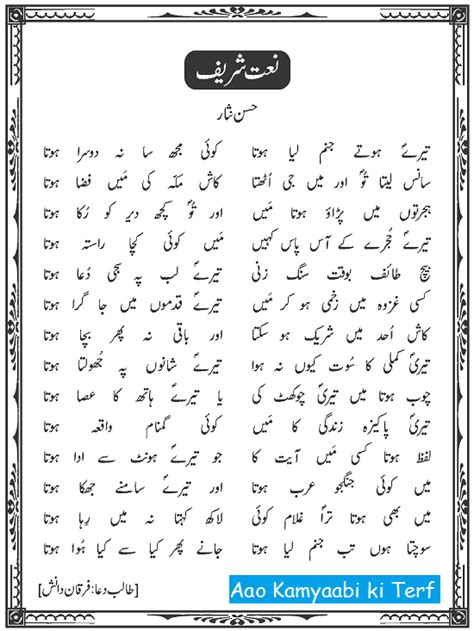 نعت شریف
حسن نثار
تیرےؐ ہوتے جنم لیا ہوتا کوئی مجھ سا نہ دوسرا ہوتا
سانس لیتا توؐ اور میں جی اُٹھتا کاش مکّہ کی مَیں فضا ہوتا
ہجرتوں میں پڑاؤ ہوتا مَیں اور توؐ کچھ دیر کو رُکا ہوتا
تیرےؐ حُجرے کے آس پاس کہیں مَیں کوئی کچا راستہ ہوتا
بیچ طائف بوقت سنگ زنی تیرےؐ لب پہ سجی دُعا ہوتا
کسی غزوہ میں زخمی ہو کر مَیں تیرےؐ قدموں میں جا گرا ہوتا
کاش اُحد میں شریک ہو سکتا اور باقی نہ پھر بچا ہوتا
تیریؐ کملی کا سُوت کیوں نہ ہوا تیرےؐ شانوں پہ جُھولتا ہوتا
چوب ہوتا میں تیریؐ چوکھٹ کی یا تیرےؐ ہاتھ کا عصا ہوتا
تیریؐ پاکیزہ زندگی کا مَیں کوئی گمنام واقعہ ہوتا
لفظ ہوتا کسی مَیں آیت کا جو تیرےؐ ہونٹ سے ادا ہوتا
مَیں کوئی جنگجو عرب ہوتا اور تیرےؐ سامنے جھکا ہوتا
میں بھی ہوتا تراؐ غلام کوئی لاکھ کہتا نہ میں رِہا ہوتا
سوچتا ہوں تب جنم لیا ہوتا جانے پھر کیا سے کیا ہُوا ہوتا
[طالب دعا: فرقان دانش]
Aao Kamyaabi ki Terf